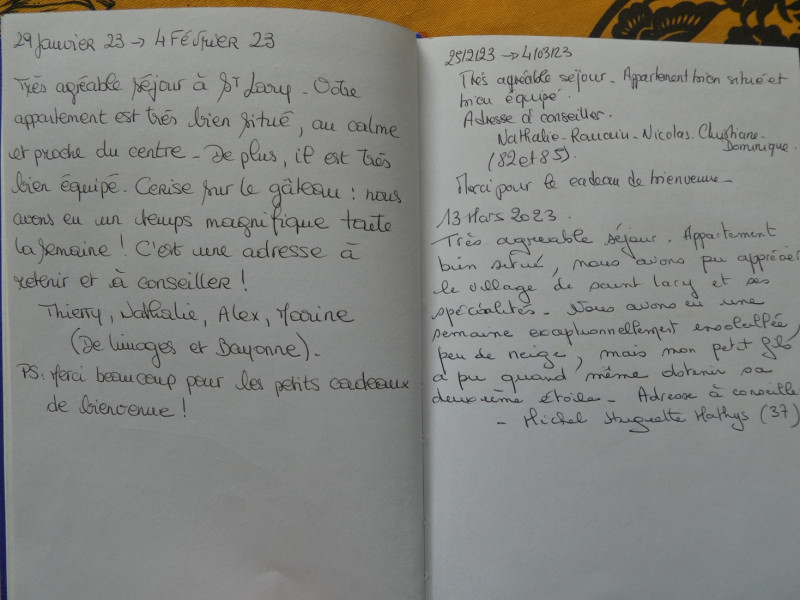 29 Janvier 23 → 4 Février 23
Très agréable séjour à St Lary - Votre
appartement est très bien situé, au calme
et proche du centre - De plus, il est très
bien équipé. Cerise sur le gâteau : nous
avons eu un temps magnifique toute
la semaine ! C'est une adresse à
retenir et à conseiller !
Thierry, Nathalie, Alex, Marine
(De Limoges et Bayonne).
PS : Merci beaucoup pour les petits cadeaux
de bienvenue !
25/2/23 → 4/03/23
Très agréable séjour - Appartement bien situé et
bien équipé.
Adresse à conseiller.
Nathalie - Romain - Nicolas - Christiane -
Dominique.
(82 et 85).
Merci pour le cadeau de bienvenue -
13 Mars 2023.
Très agréable séjour. Appartement
bien situé, nous avons pu apprécier
le village de saint lary et ses
spécialités - Nous avons eu une
semaine exceptionnellement ensoleillée,
peu de neige, mais mon petit fils
a pu quand même obtenir sa
deuxième étoile - Adresse à conseiller
- Michel Huguette Mathys (37)